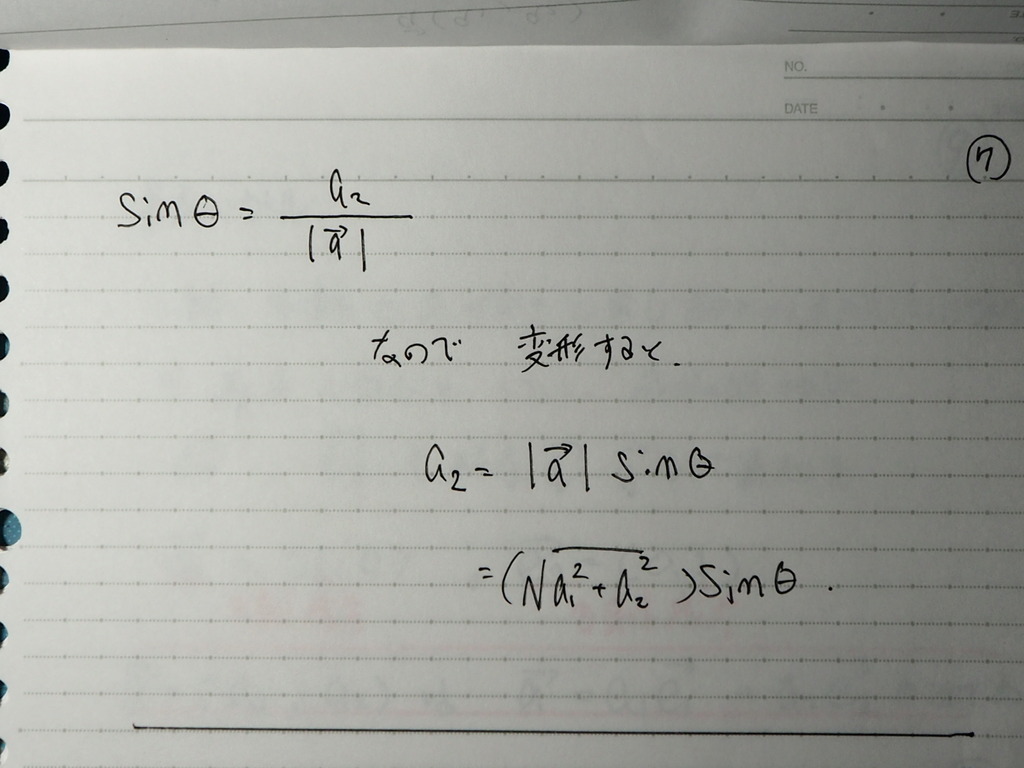 NO.
DATE
⑦
sinθ = a₂ / |a⃗|
なので 変形すると.
a₂ = |a⃗| sinθ
= (√a₁² + a₂²) sinθ.